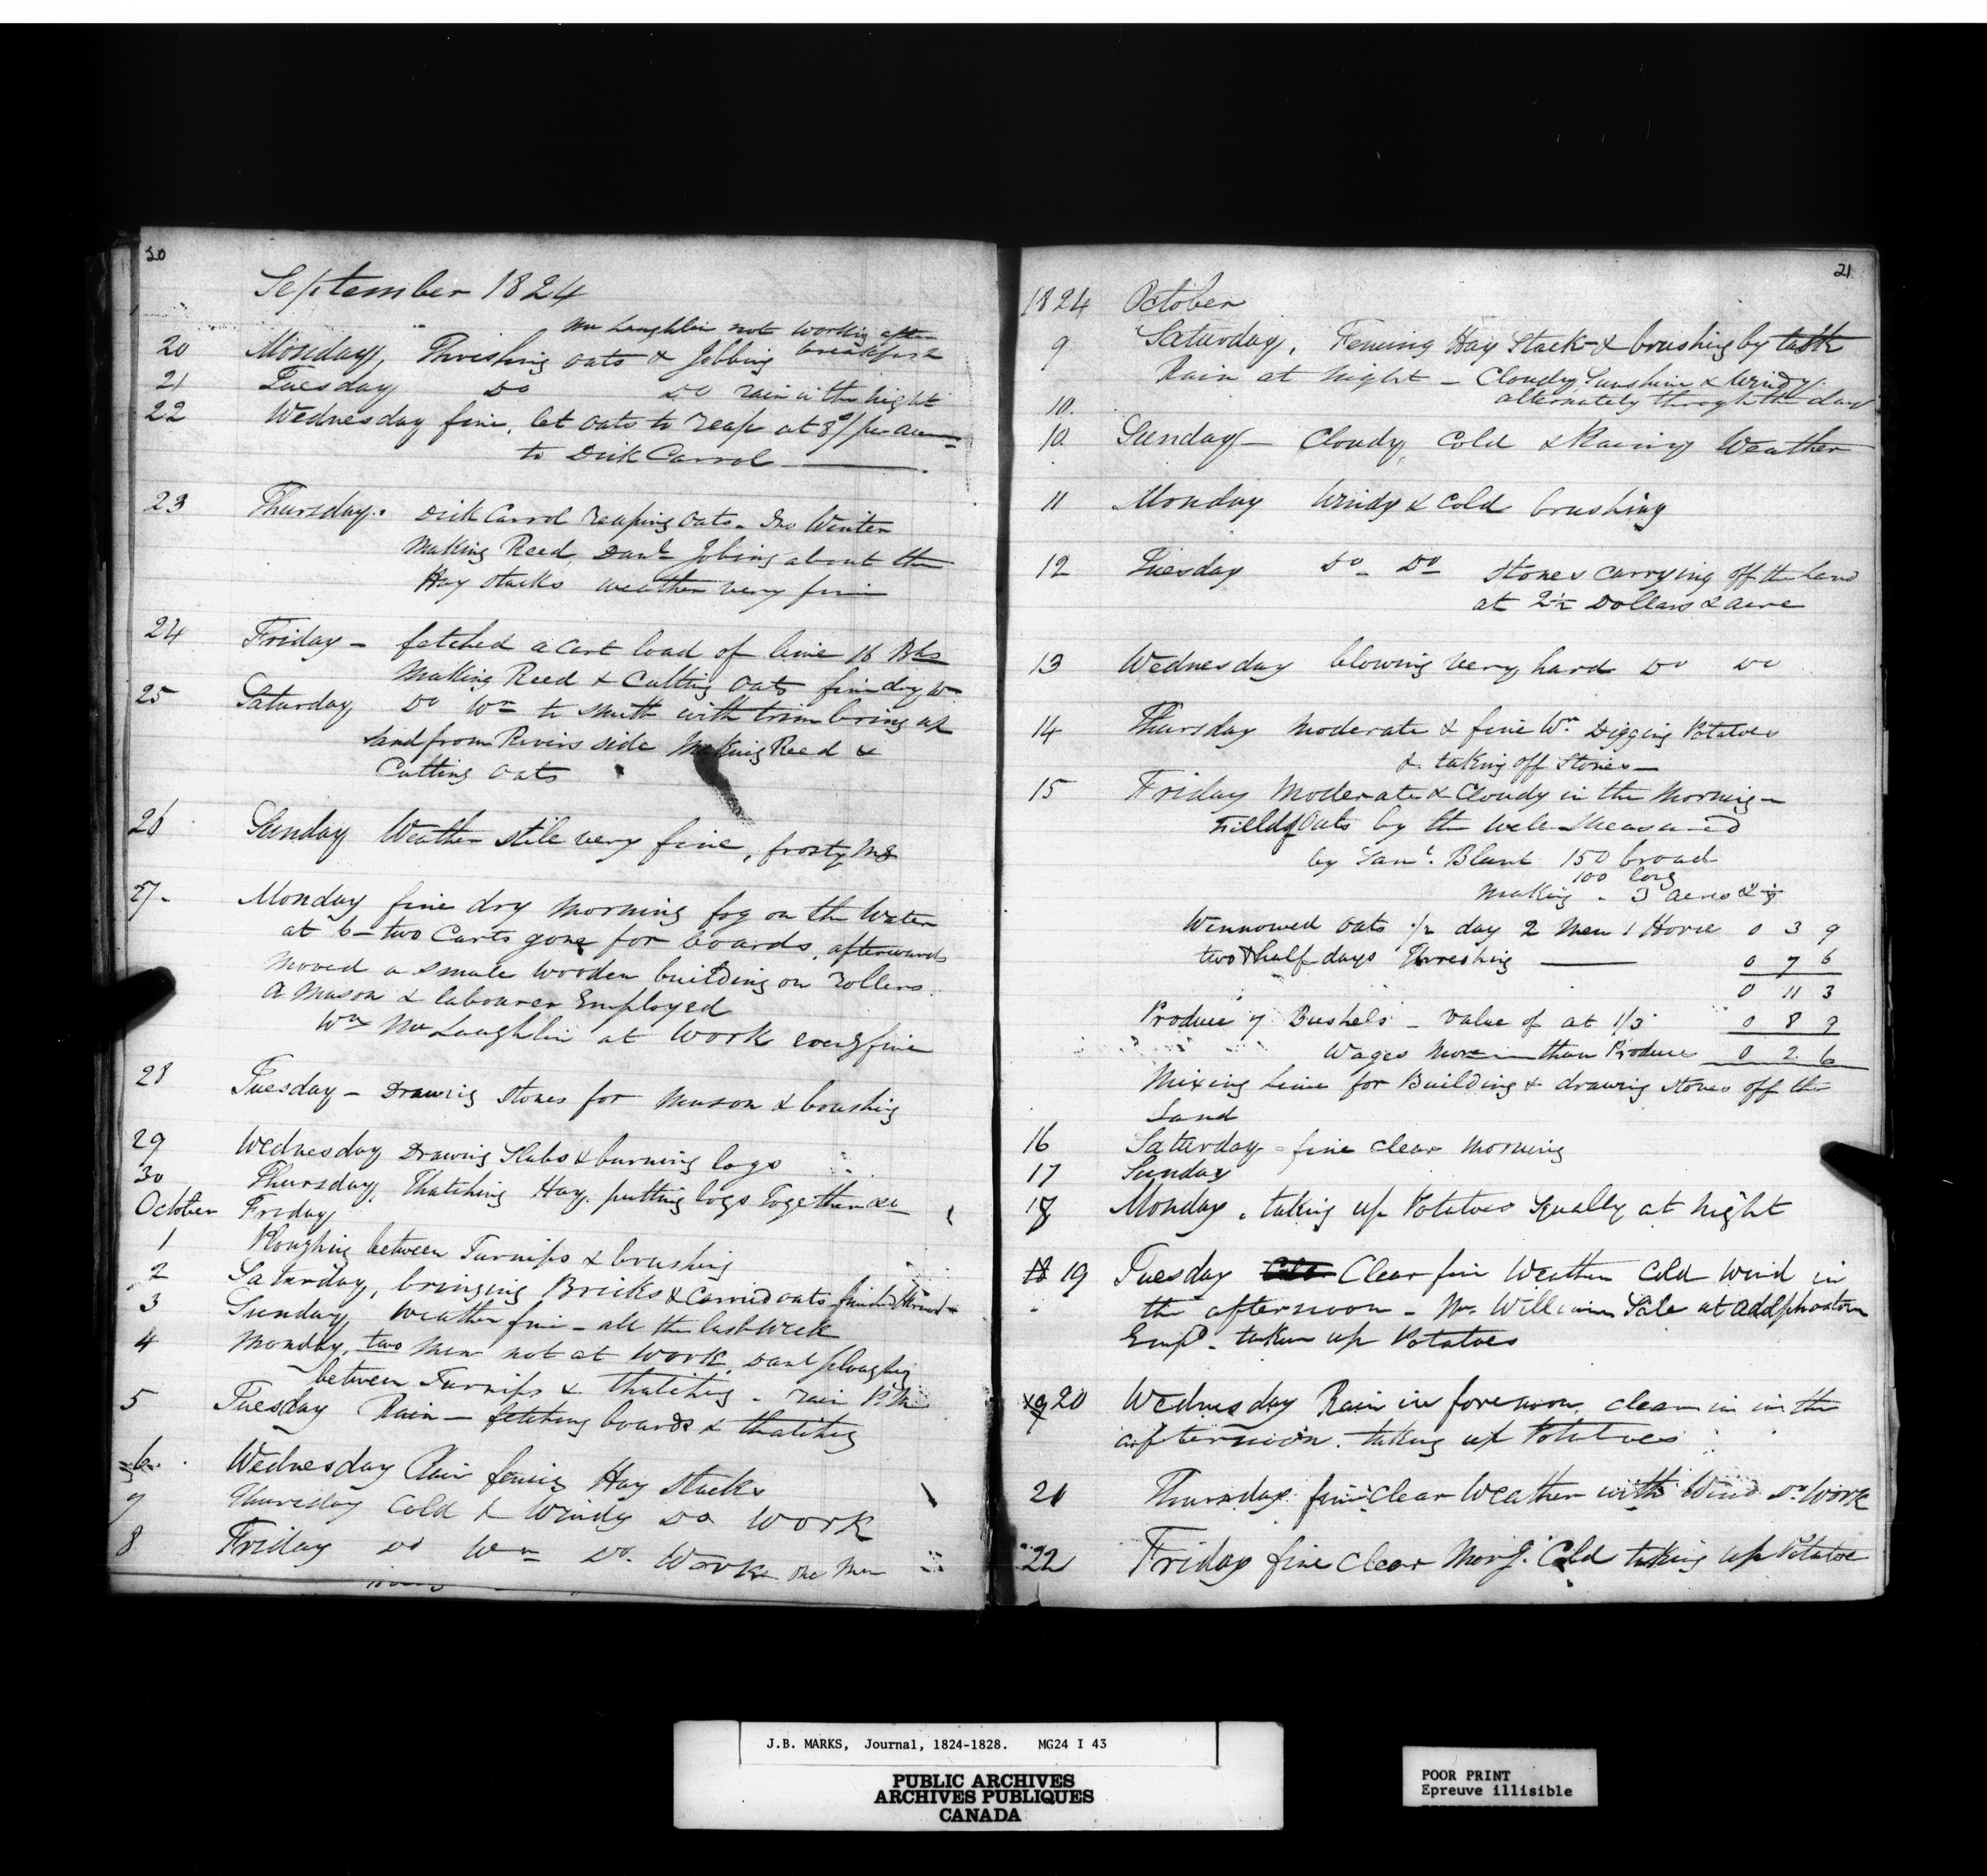 20
September 1824
Mc Laughlin not working after
20 Monday, Thrishing oats & Jobbing breakfast
21 Tuesday Do Do rain in the night
22 Wednesday fine. let oats to reap at 8/ per acre
to Dick Carrol
23 Thursday. Dick Carrol reaping oats. Jno Winter
Making Reed, Danl Jobing about the
Hay stacks weather very fine
24 Friday - fetched a Cart load of lime 16 Bls
Making Reed & Cutting oats fine dry Wr
25 Saturday Do Wr to Smith with bring up
sand from Rivers side Making Reed &
Cutting oats
26 Sunday Weather still very fine, frosty Mg
27- Monday fine dry morning fog on the Water
at 6 - two Carts gone for boards, afterwards
moved a small wooden building on rollers
A Mason & labourer Employed
Wm Mc Laughlin at work fine
28 Tuesday - Drawing stones for mason & brushing
29 Wednesday Drawing Slabs & burning logs
30 Thursday, Thatching Hay. putting logs Together &c
October Friday
1 Ploughing between Turnips & brushing
2 Saturday, bringing Bricks & Carried oats
3 Sunday, Weather fine - all the last week
4 Monday, two men not at work, Danl ploughing
between Turnips & thatching - rain P.M
5 Tuesday Rain - fetching boards & thatching
6 Wednesday Rain fencing Hay stacks
7 Thursday Cold & Windy Do Work
8 Friday Do Wr Do. Work one Man
21
1824 October
9 Saturday, Fencing Hay Stack & brushing by task
Rain at night - Cloudy, Sunshine & Windy
10. alternately through the day
10. Sunday - Cloudy, Cold & Rainy Weather
11 Monday Windy & Cold brushing
12 Tuesday Do Do Stones carrying off the land
at 2½ Dollars & acre
13 Wednesday blowing very hard Do Do
14 Thursday Moderate & fine Wr Digging Potatoes
& taking off Stones -
15 Friday Moderate & Cloudy in the Morning -
Field of Oats by the well Measured
by Saml. Blunt 150 broad
100 long
Making - 3 acres &
Winnowed oats ½ day 2 Men 1 Horse 0 3 9
two & half days Threshing 0 7 6
0 11 3
Produce 7 Bushels - value of at 1/3 0 8 9
Wages more than Produce 0 2 6
Mixing lime for Building & drawing stones off the
Land
16 Saturday - fine clear morning
17 Sunday
18 Monday, taking up Potatoes Squally at night
18 19 Tuesday Cold Clear fine Weather Cold Wind in
the afternoon - Mr William Sale at Addlphostown
Empd. taken up Potatoes
19 20 Wednesday Rain in forenoon, clear in in the
afternoon. taking up Potatoes
21 Thursday fine clear Weather with Wind Do Work
22 Friday fine clear Morg. Cold taking up Potatoe
J.B. MARKS, Journal, 1824-1828. MG24 I 43
PUBLIC ARCHIVES
ARCHIVES PUBLIQUES
CANADA
POOR PRINT
Epreuve illisible